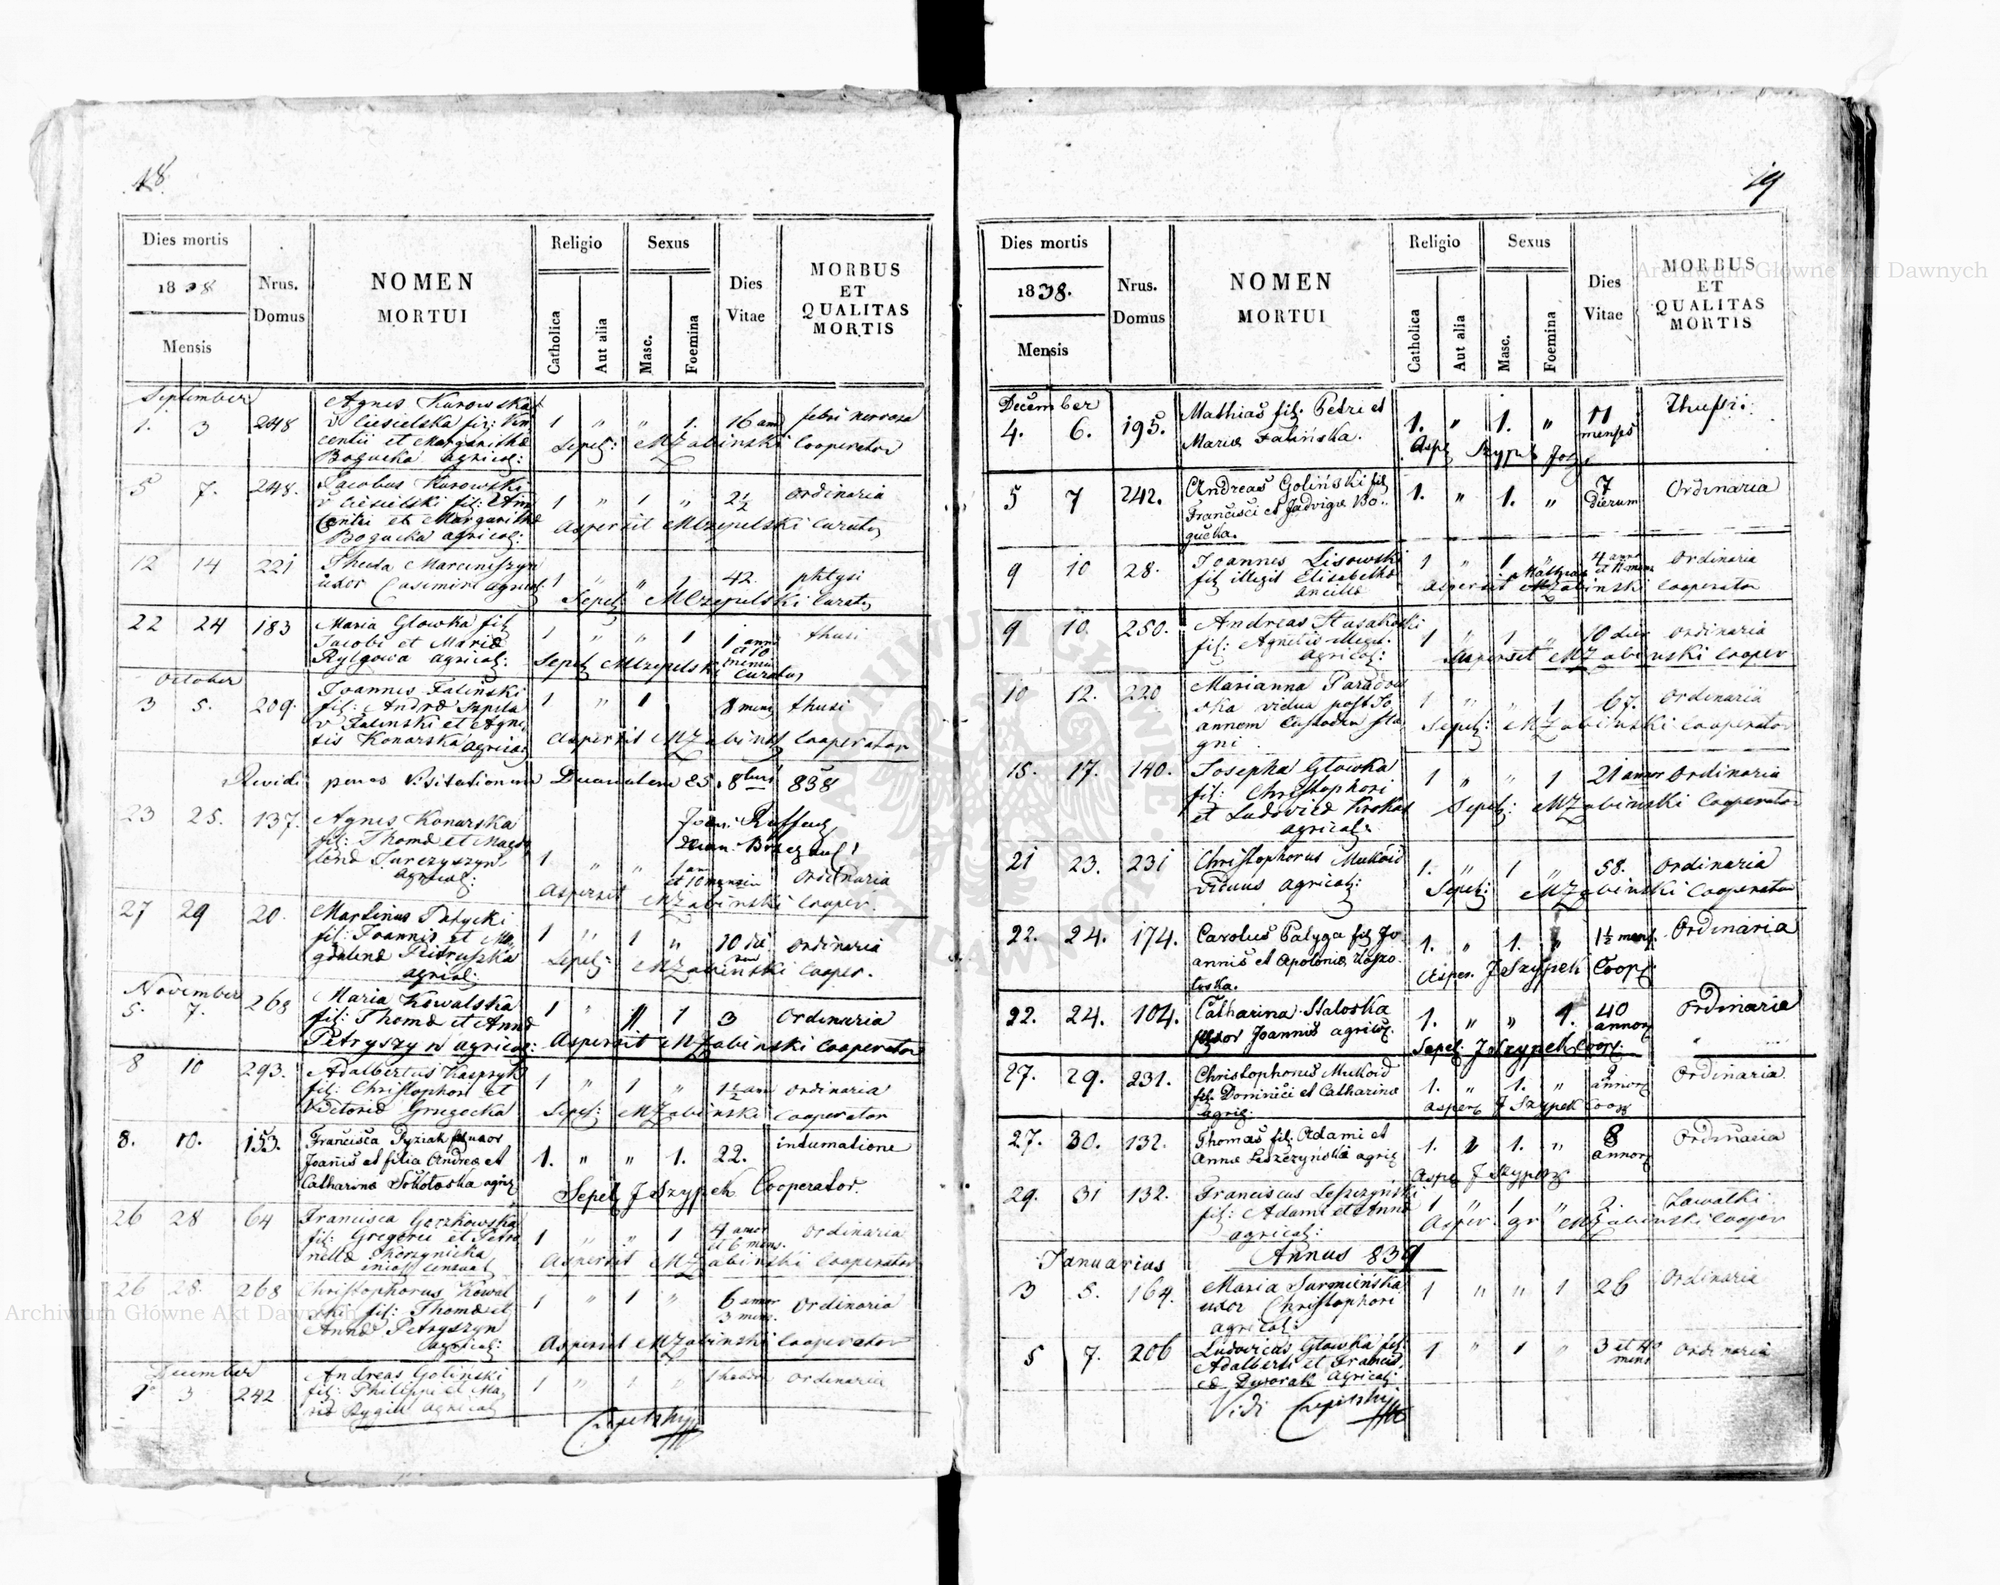 18
Dies mortis
1838
Mensis
Nrus.
Domus
NOMEN
MORTUI
Religio
Catholica
Aut alia
Sexus
Masc.
Foemina
Dies
Vitae
MORBUS
ET
QUALITAS
MORTIS
September
1. 3 248 Agnes Kurowska 1 " " 1. 16 febri nervosa
v Ciesielska fil: Vin
centii et Margarithæ Sepel: MZabinski Cooperator
Bogucka agricol:
5 7. 248. Jacobus Kurowski 1 " 1 " 2½ ordinaria
v Ciesielski fil: Vin
centii et Margarithæ Aspersit MCzepielski Curatus
Bogucka agricol:
12 14 221 Marciniszyn 1 " " 1 42. phtysi
uxor Casimiri agricol: Sepel: MCzepielski Curatus
22 24 183 Maria Glowka fil 1 " " 1 1 anni et 10 mensium thusi
Jacobi et Mariæ
Rylgowa agricol: Sepel MCzepielski Curatus
October
3 5. 209. Joannes Falinski 1 " 1 8 mens thusi
fil: Andreæ Szpila
v Falinski et Agne
tis Konarska agricol: Aspersit MZabinski Cooperator
Revidi penes Visitationem Decanalem 25. 8bris 838
23 25. 137. Agnes Konarska
fil: Thomæ et Magda
lenæ Surczyszyn 1. " " et 10 mensium ordinaria
Agricol: Aspersit MZabinski Cooper.
27 29 20. Martinus Patycki 1 " 1 " 10 die ordinaria
fil: Joannis et Ma
gdalenæ Pietruszka Sepel: MZabinski Cooper.
agricol:
November
5. 7. 268 Maria Kowalska 1 " " 1 3 ordinaria
fil: Thomæ et Annæ
Petryszyn agricol: Aspersit MZabinski Cooperator
8 10 293. Adalbertus Kaspryk 1 " 1 " 1½ an ordinaria
fil: Christophori et
Victoriæ Gregecka Sepel: MZabinski Cooperator
8. 10. 153. Francisca Pyziak uxor 1. " " 1. 22. intumatione
Joanis et filia Andreæ et
Catharinæ Sokołoska agric Sepel J Szypek Cooperator.
26 28 64 Francisca Gorzkowska 1 " " 1 4 annor et 6 mens. ordinaria
fil: Gregorii et Petro
nellæ Skorzynicka Aspersit MZabinski Cooperator
26 28. 268 Christophorus Kowal 1 " 1 " 6 annor 3 mens. ordinaria
ski fil: Thomæ et
Annæ Petryszyn
agricol: Aspersit MZabinski Cooperator
December
1 3 242 Andreas Golinski 1 " 1 " ordinaria
fil: Philippi et Ma
riæ Rygiel agricol
Czepielski
19
Dies mortis
1838.
Mensis
Nrus.
Domus
NOMEN
MORTUI
Religio
Catholica
Aut alia
Sexus
Masc.
Foemina
Dies
Vitae
MORBUS
ET
QUALITAS
MORTIS
December
4. 6. 195. Mathias fil. Petri et 1. " 1. " 11 menses Thussi.
Mariæ Falińska. Asper Szypek Joz
5 7 242. Andreas Goliński fil 1. " 1. " 7 dierum Ordinaria
Francisci et Jadvigæ Bo
gucka.
9 10 28. Joannes Lisowski 1 " 1 " 4 anno et 11 mens ordinaria
fil illegit Elisabethæ Aspersit Mathias Zabinski Cooperator
ancillæ
9 10. 250. Andreas Stasakoski 1 " 1 " 10 dier ordinaria
fil: Agnetis illegit. Aspersit MZabinski Cooper
agricol:
10 12. 220 Marianna Paradow 1 " " 1 67. ordinaria
ska vidua post Jo
annem Custodem sta Sepel: MZabinski Cooperator
gni
15. 17. 140. Josepha Głowka 1 " " 1 21 annor Ordinaria
fil: Christophori Sepel: MZabinski Cooperator
et Ludovicæ Krokos
agricol:
21 23. 231 Christophorus Mukoid 1. " 1 " 58. Ordinaria
viduus agricol: Sepel: MZabinski Cooperator
22. 24. 174. Carolus Palyga fil Jo 1. " 1. " 1½ mens. Ordinaria
annis et Apoloniæ Asper. J Szypek Coope
22. 24. 104. Catharina Staloska 1. " " 1. 40 annor Ordinaria
uxor Joannis agricol. Sepel: J Szypek Coope
27. 29. 231. Christophorus Mukoid 1. " 1. " 2 annor Ordinaria.
fil. Dominici et Catharinæ
agric: Aspers J Szypek Coop
27. 30. 132. Thomas fil. Adami et 1. " 1. " 8 annor Ordinaria
Annæ Leszczyńska agric Asper J Szypek
29. 31 132. Franciscus Leszczyński 1 " 1 " 2. Zawałki
fil: Adami et Annæ Asper. gr MZabinski Cooper
agricol:
Annus 839
Januarius
3 5. 164. Maria Surmińska 1 " " 1 26 Ordinaria
uxor Christophori
agricol:
5 7. 206 Ludovicus Głowka fil: 1 " 1 " 3 et 4 mens Ordinaria
Adalberti et Francis
cæ Dworak agricol:
Vidi Czepielski
Archiwum Główne Akt Dawnych
Archiwum Główne Akt Dawnych
ARCHIWUM GŁÓWNE AKT DAWNYCH